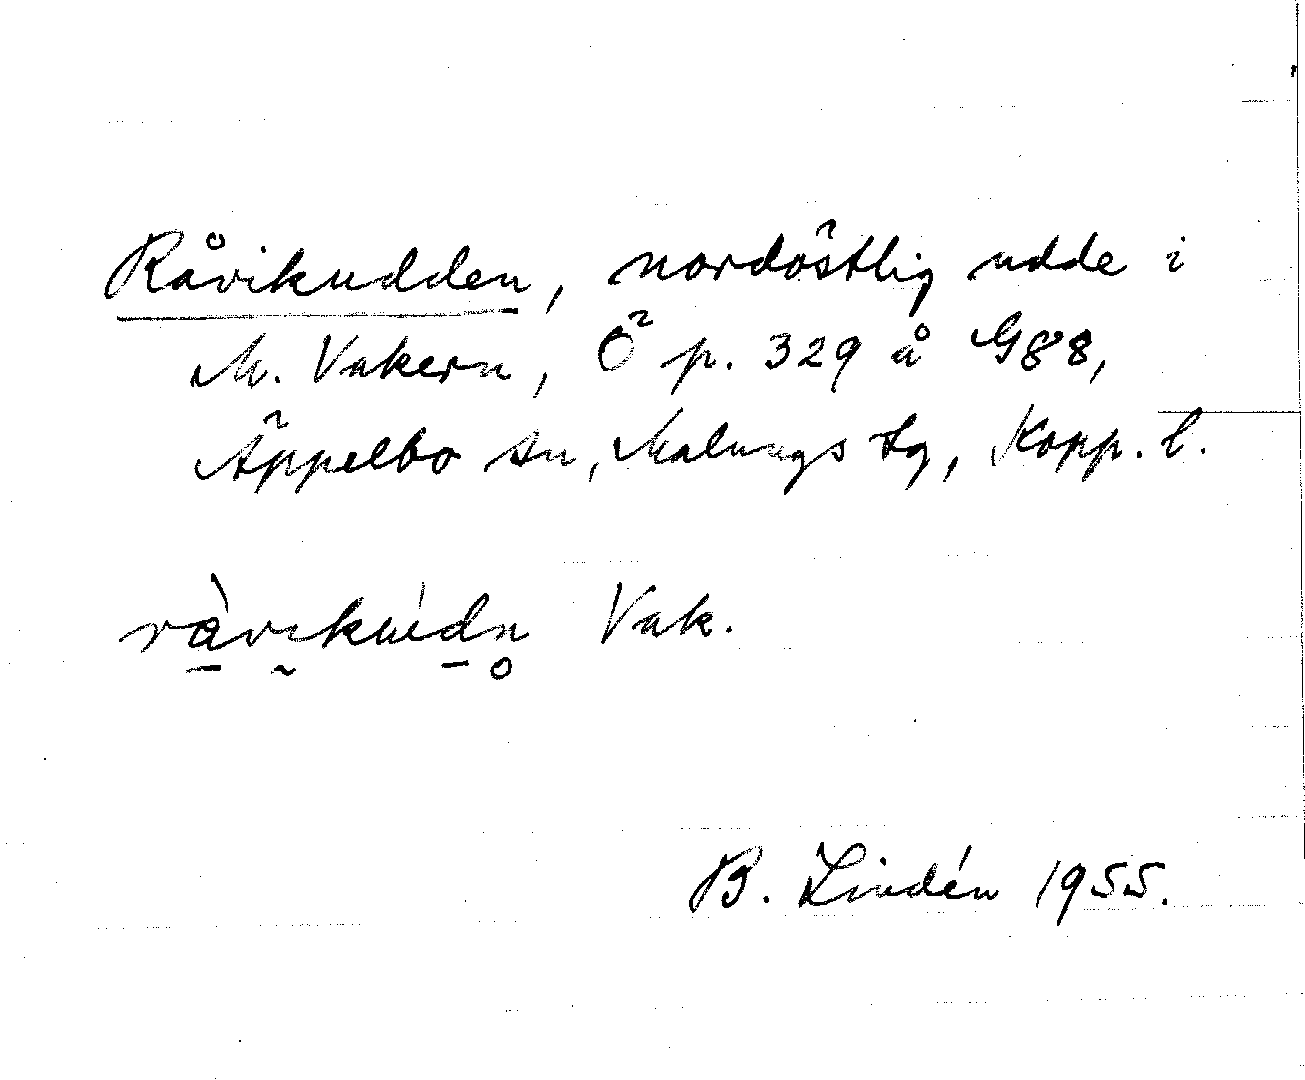 Råvikudden, nordöstlig udde i
M. Vakern, Ö p. 329 å G88,
Äppelbo sn, Malungs tg, Kopp. l.
Vak.
B. Lindén 1955.